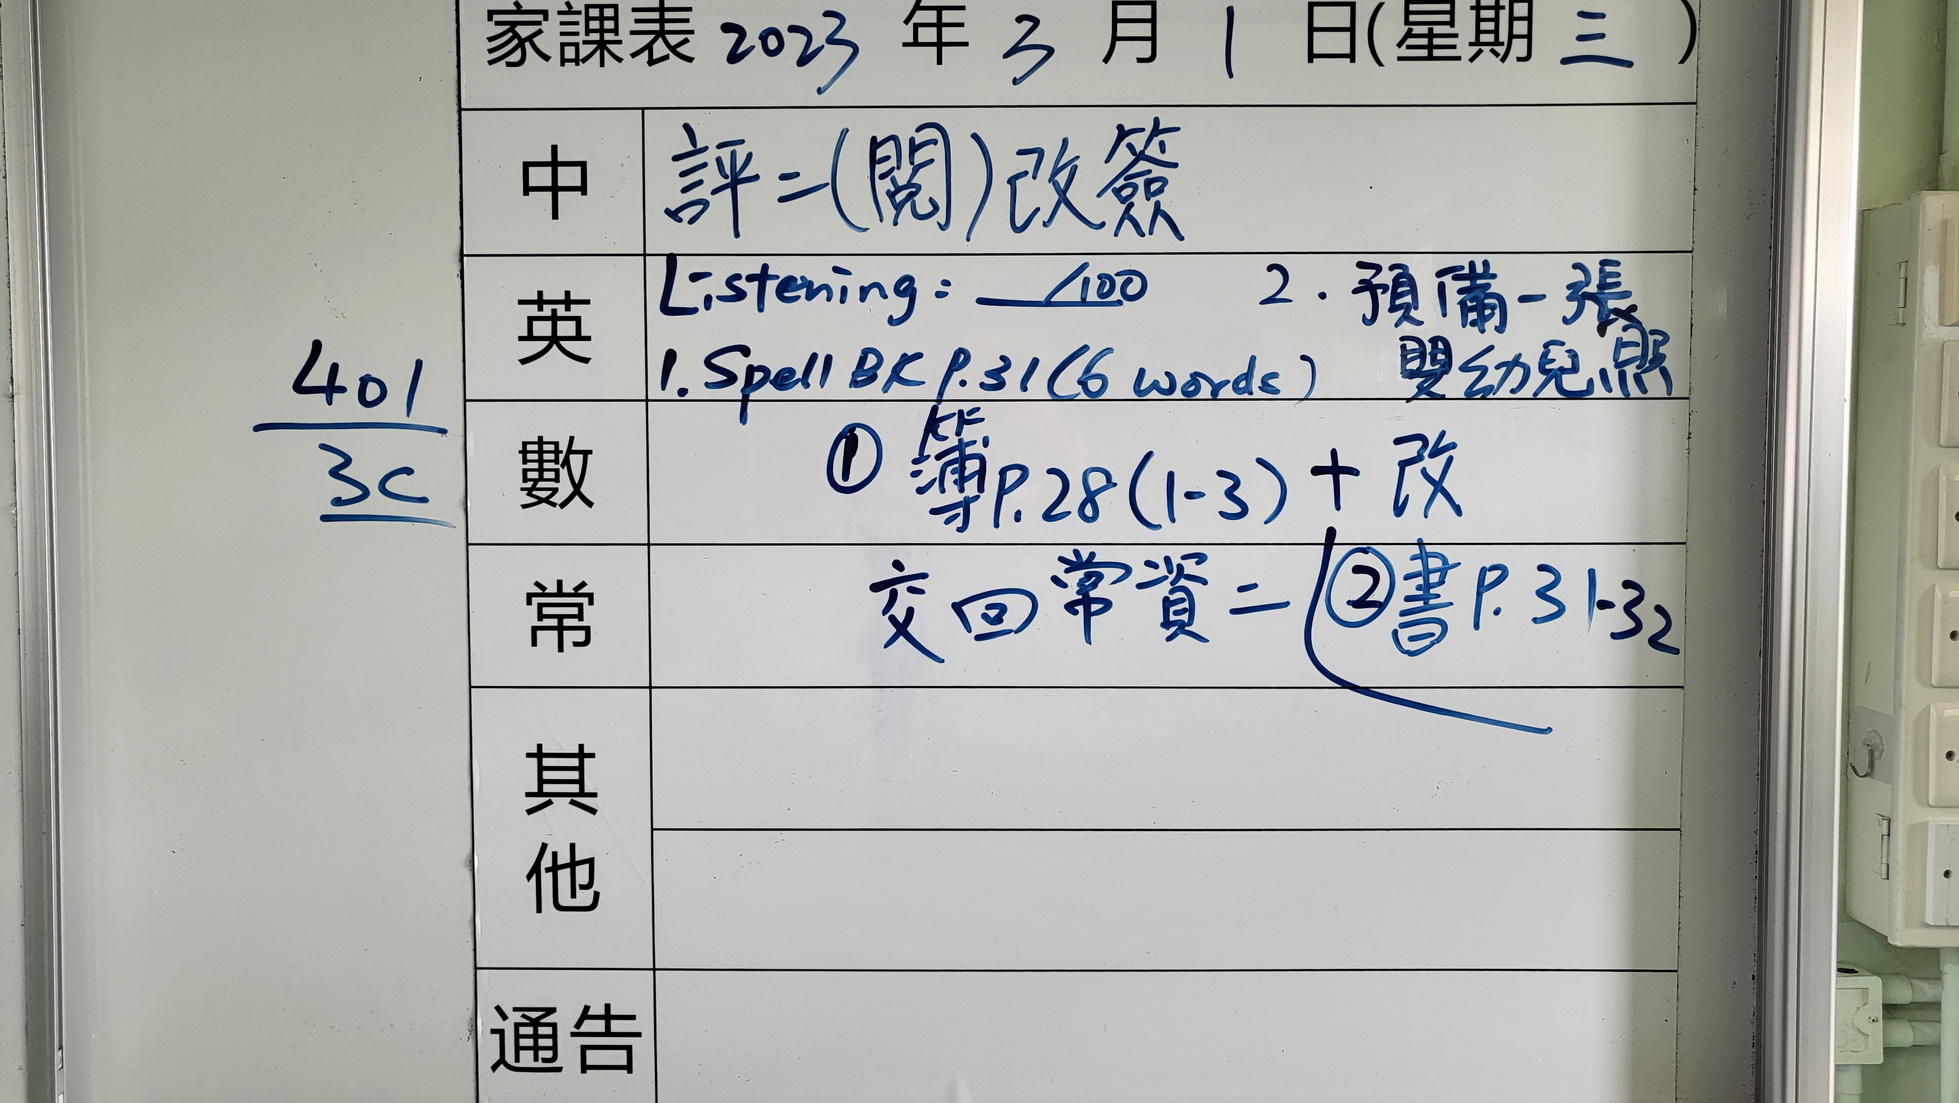 家課表 2023 年 3 月 1 日(星期 三 )
中 評二(閱)改簽
英 Listening: ___/100 2. 預備一張
1. Spell BK P.31 (6 words) 嬰幼兒照
401
3C
數 ① 簿P.28 (1-3) + 改
常 交回常資二 ② 書 P. 31-32
其
他
通告